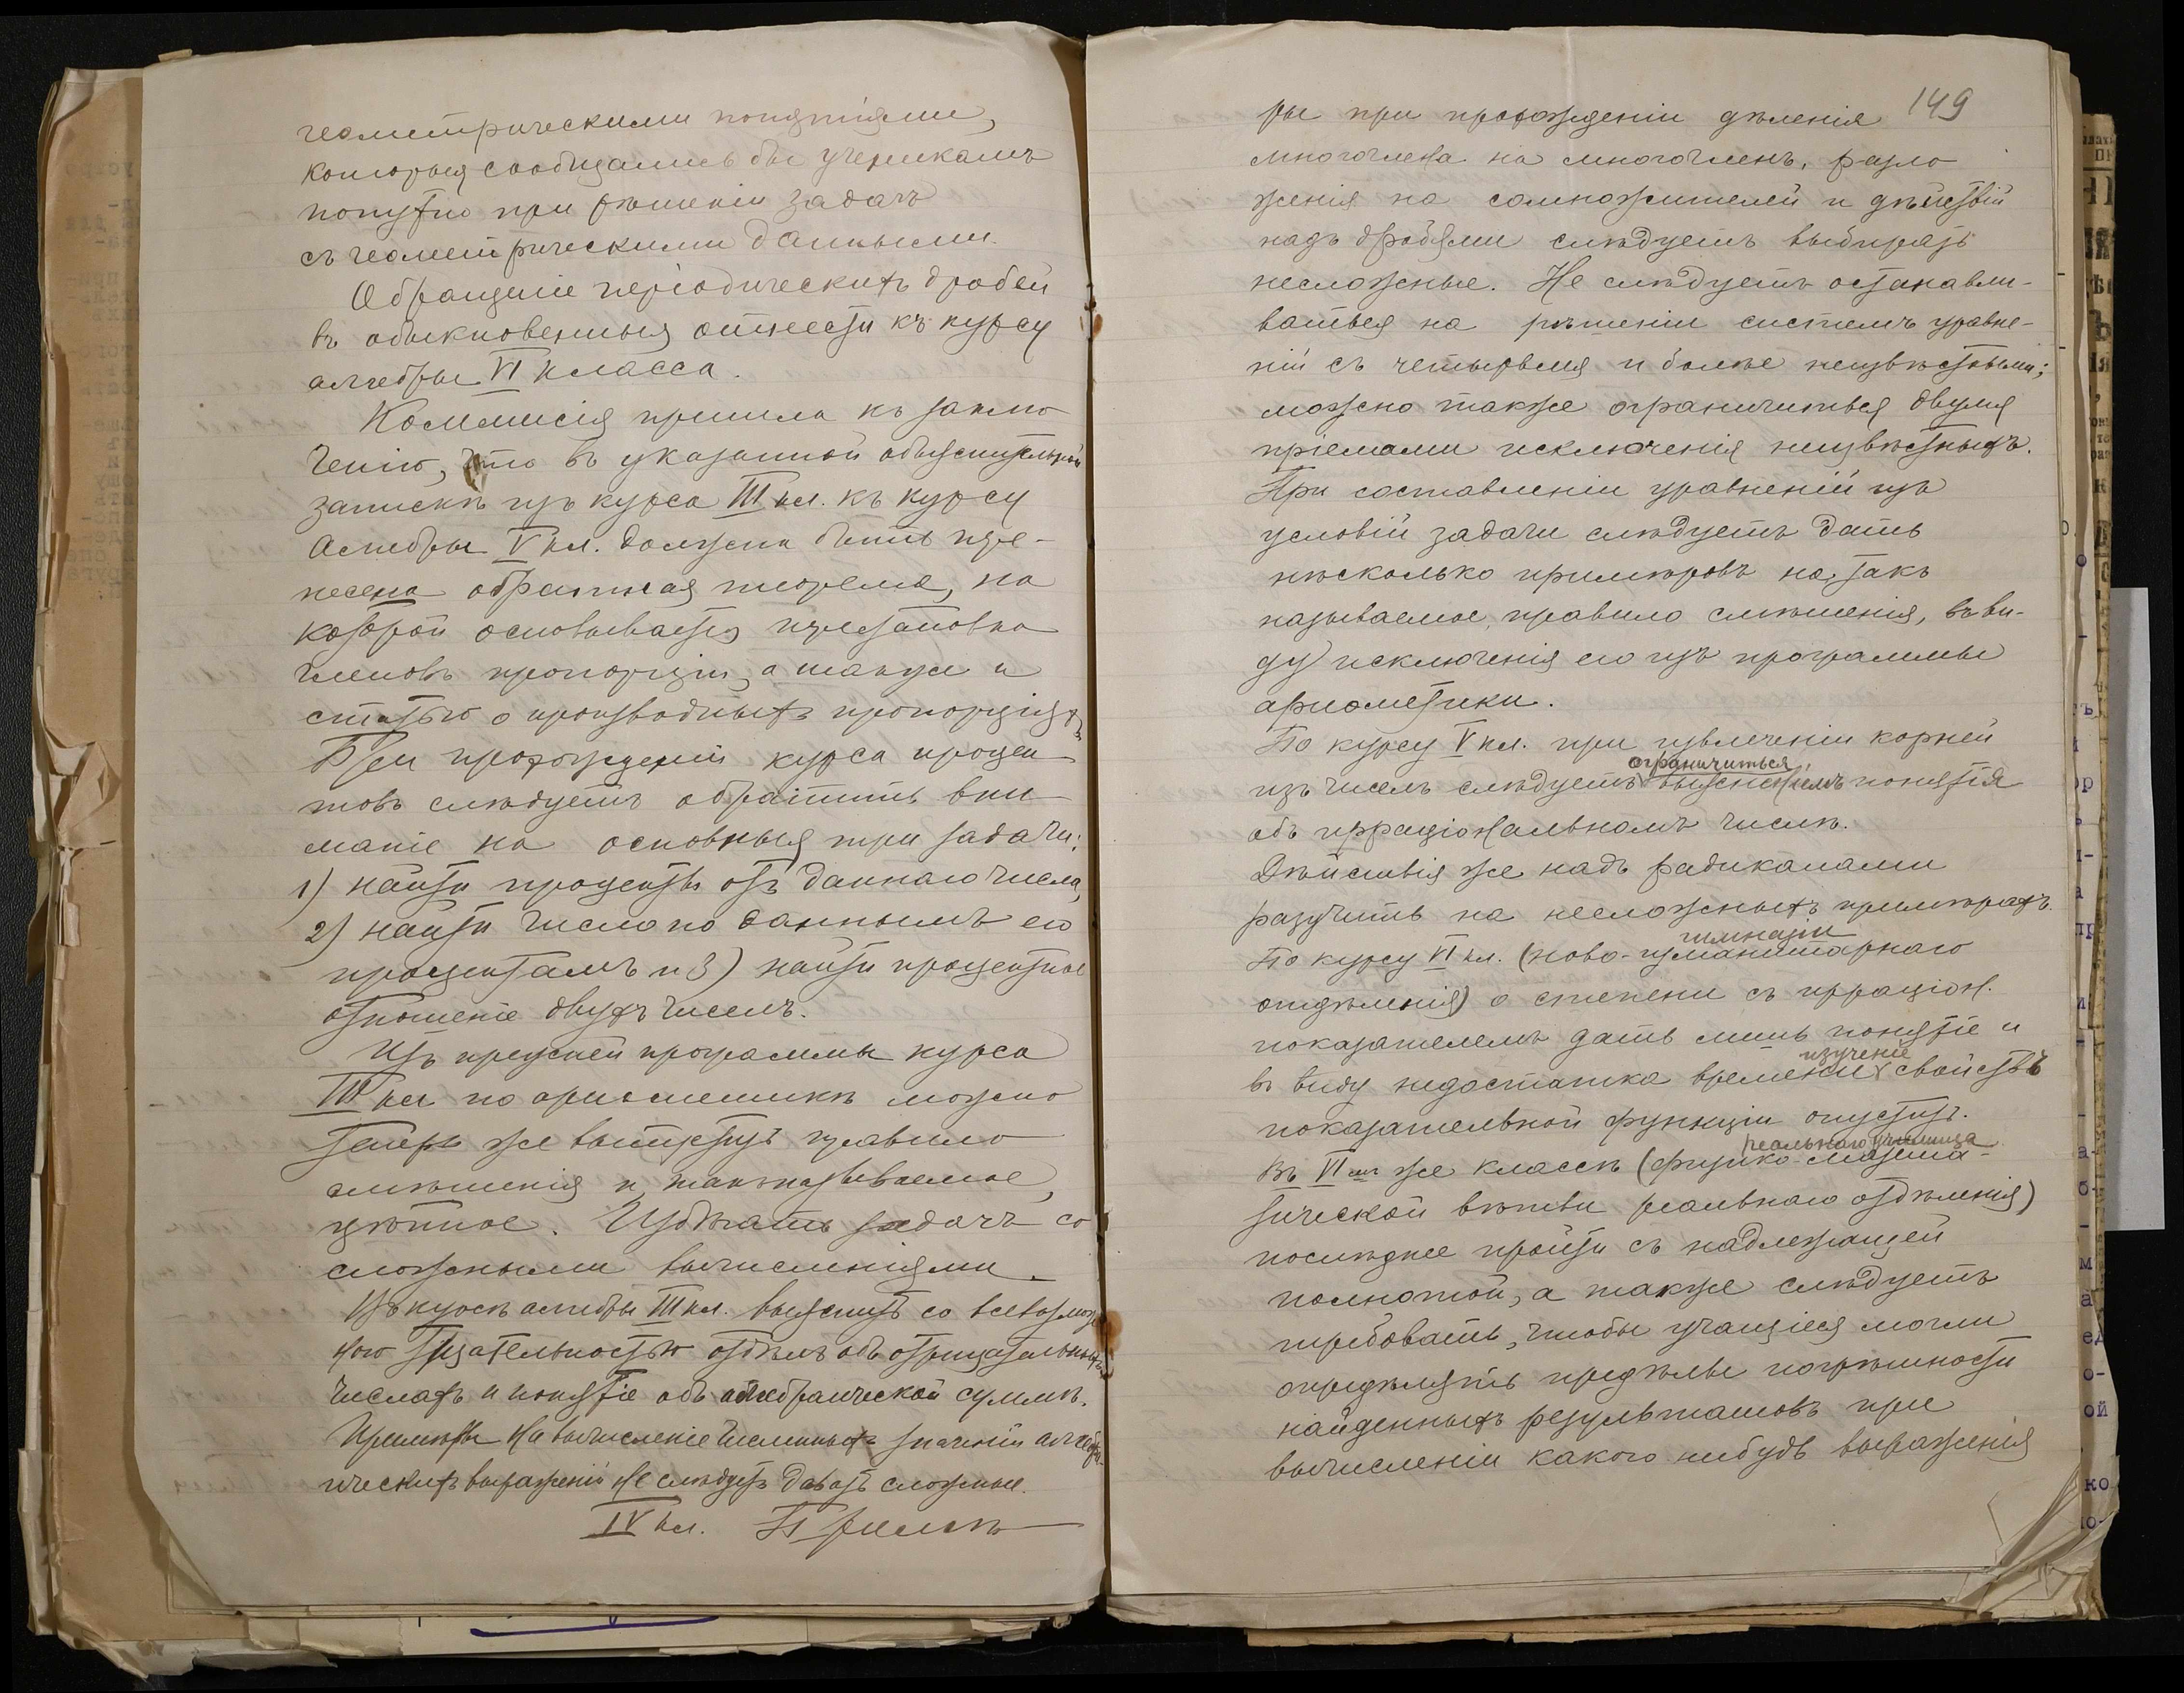 геометрическими понятіями,
которыя сообщались бы ученикамъ
попутно при рѣшеніи задачъ
съ геометрическими данными.
Обращеніе періодическихъ дробей
въ обыкновенныя отнести къ курсу
алгебры VI класса.
Коммисія пришла къ заклю
ченію, что въ указанной объяснительной
запискѣ изъ курса III кл. къ курсу
Алгебры V кл. должна быть пере-
несена обратная теорема, на
которой основывается перестановка
членовъ пропорціи, а также и
статью о производныхъ пропорціяхъ.
При прохожденіи курса процен
товъ слѣдуетъ обратить вни
маніе на основныя три задачи:
1) найти проценты отъ даннаго числа,
2) найти число по даннымъ его
процентамъ и 3) найти процентное
отношеніе двухъ чиселъ.
Изъ прежней программы курса
III кл по ариѳметикѣ можно
теперь же выпустить правило
смѣшенія и такъ называемое,
цѣпное. Избѣгать задачъ со
сложными вычисленіями.
Въ курсѣ алгебры III кл. выяснить со всевозмож
ною тщательностью отдѣлъ объ отрицательныхъ
числахъ и понятіе объ алгебраической суммѣ.
Примѣры на вычисленіе численныхъ значеній алгебра-
ическихъ выраженій не слѣдуетъ давать сложные.
IV кл. Примѣ
149
ры при прохожденіи дѣленія
многочлена на многочленъ, разло
женія на сомножителей и дѣйствій
надъ дробями слѣдуетъ выбирать
несложные. Не слѣдуетъ останавли-
ваться на рѣшеніи системъ уравне-
ній съ четырьмя и болѣе неизвѣстными;
можно также ограничиться двумя
пріемами исключенія неизвѣстныхъ.
При составленіи уравненій изъ
условій задачи слѣдуетъ дать
нѣсколько примѣровъ на, такъ
называемое, правило смѣшенія, въ ви-
ду исключенія его изъ программы
ариѳметики.
По курсу V кл. при извлеченіи корней
ограничиться
изъ чиселъ слѣдуетъ выясненіемъ понятія
объ ирраціональномъ числѣ.
Дѣйствія же надъ радикалами
разучить на несложныхъ примѣрахъ.
гимназіи
По курсу VI кл. (ново-гуманитарнаго
отдѣленія) о степени съ ирраціон.
показателемъ дать лишь понятіе и
изученіе
въ виду недостатка времени свойствъ
показательной функціи опустить.
реальнаго училища
Въ VI мъ же классѣ (физико-матема-
тической вѣтви реальнаго отдѣленія)
послѣднее пройти съ надлежащей
полнотой, а также слѣдуетъ
требовать, чтобы учащіеся могли
опредѣлять предѣлы погрѣшности
найденныхъ результатовъ при
вычисленіи какого нибудь выраженія